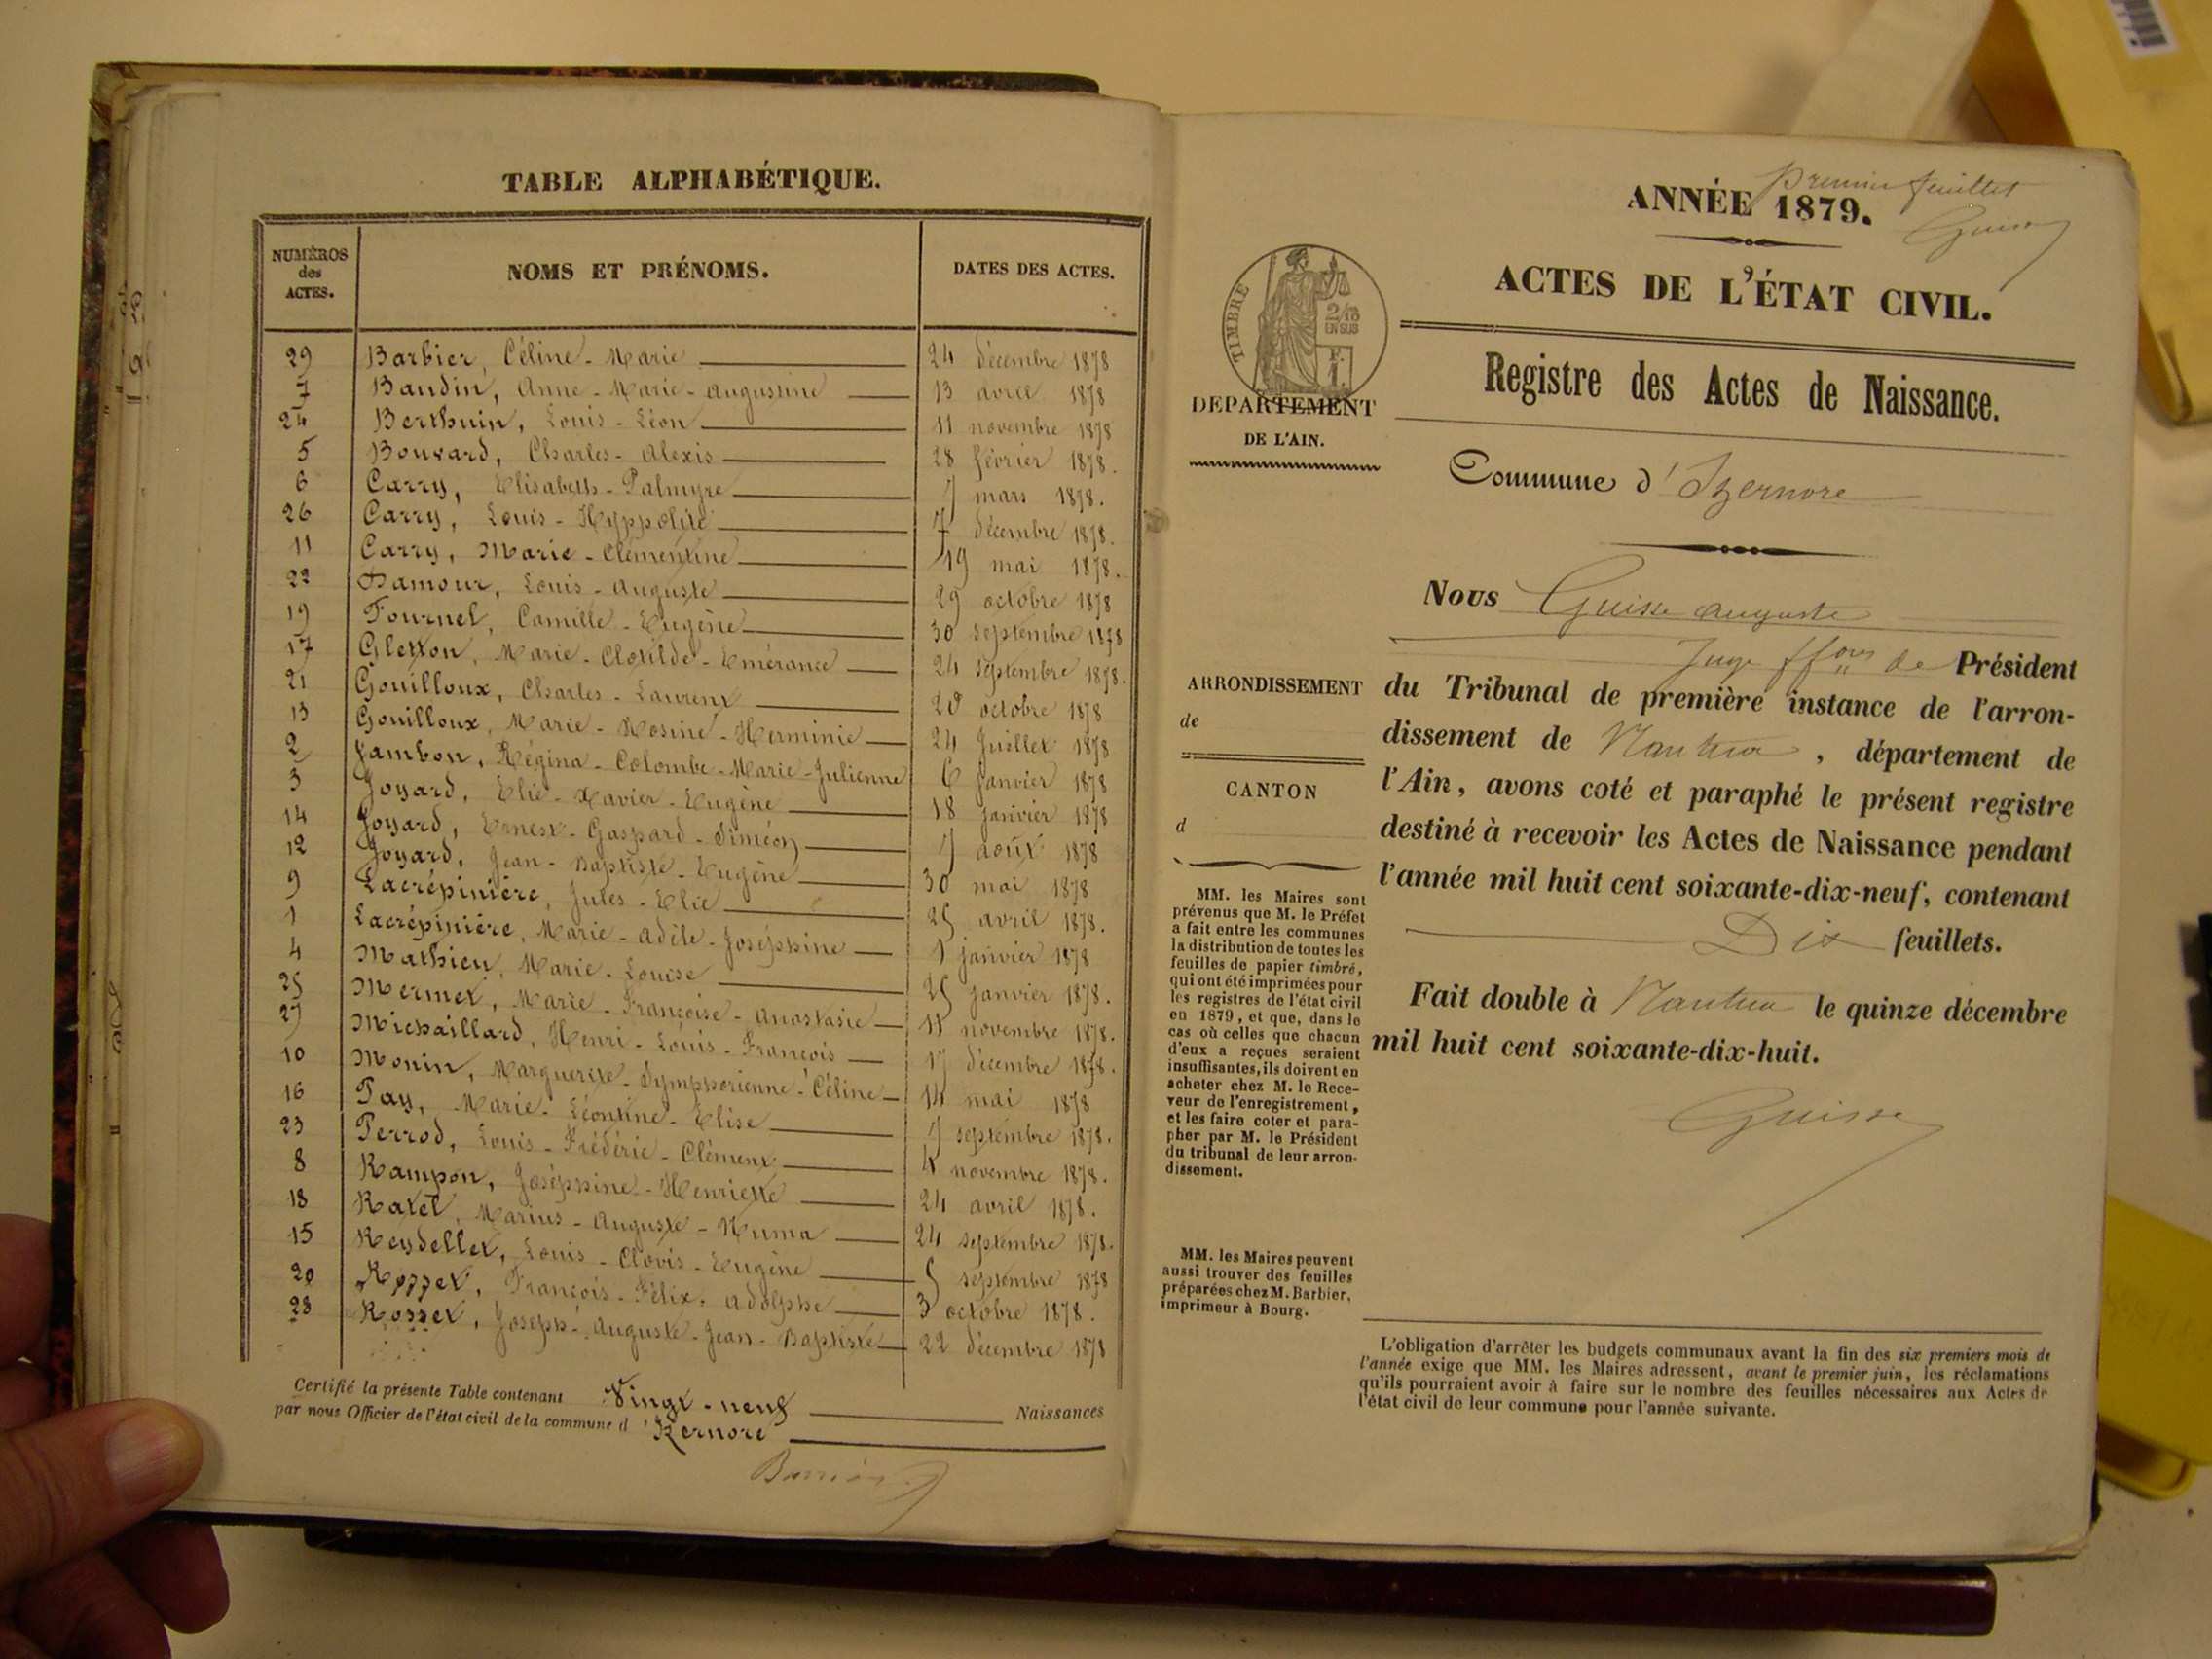 TABLE ALPHABÉTIQUE.
NUMÉROS des ACTES.
NOMS ET PRÉNOMS.
DATES DES ACTES.
29 Barbier, Céline - Marie 24 décembre 1878
7 Baudin, Anne - Marie - Augustine 13 avril 1878
24 Berthuin, Louis - Léon 11 novembre 1878
5 Bouvard, Charles - Alexis 28 février 1878.
6 Carry, Elisabeth - Palmyre 7 mars 1878.
26 Carry, Louis - Hyppolite 7 décembre 1878.
11 Carry, Marie - Clémentine 19 mai 1878.
22 Damour, Louis - Auguste 29 octobre 1878
19 Fournel, Camille - Eugène 30 septembre 1878
17 Gletton, Marie - Clotilde - Emérance 24 septembre 1878.
21 Gouilloux, Charles - Laurent octobre 1878
13 Gouilloux, Marie - Rosine - Herminie 24 Juillet 1878
2 Jambon, Régina - Colombe - Marie - Julienne 6 janvier 1878
3 Joyard, Elie - Xavier - Eugène 18 janvier 1878
14 Joyard, Ernest - Gaspard - Siméon 7 août 1878
12 Joyard, Jean - Baptiste - Eugène 30 mai 1878
9 Lacrépinière, Jules - Elie 25 avril 1878.
1 Lacrépinière, Marie - Adèle - Joséphine 1 janvier 1878
4 Mathieu, Marie - Louise 25 janvier 1878.
25 Mermet, Marie - Françoise - Anastasie 11 novembre 1878.
27 Michaillard, Henri - Louis - François 17 décembre 1878.
10 Monin, Marguerite - Symphorienne - Céline 14 mai 1878
16 Pay, Marie - Léontine - Elise 7 septembre 1878.
23 Perrod, Louis - Frédéric - Clément 4 novembre 1878.
8 Rampon, Joséphine - Henriette 24 avril 1878.
18 Ratel, Marius - Auguste - Numa 24 septembre 1878.
15 Reydellet, Louis - Clovis - Eugène 5 septembre 1878
20 Rosset, François - Félix - Adolphe 3 octobre 1878.
28 Rosset, Joseph - Auguste - Jean - Baptiste 22 décembre 1878
Certifié la présente Table contenant Vingt-neuf Naissances
par nous Officier de l'état civil de la commune d'Izernore
premier feuillet
ANNÉE 1879.
Guisse
ACTES DE L'ÉTAT CIVIL.
TIMBRE
2/10 EN SUS
Registre des Actes de Naissance.
DÉPARTEMENT
DE L'AIN.
Commune d'Izernore
Nous Guisse Auguste
Juge ffons de Président
du Tribunal de première instance de l'arron-
dissement de Nantua, département de
l'Ain, avons coté et paraphé le présent registre
destiné à recevoir les Actes de Naissance pendant
l'année mil huit cent soixante-dix-neuf, contenant
Dix feuillets.
Fait double à Nantua le quinze décembre
mil huit cent soixante-dix-huit.
Guisse
ARRONDISSEMENT
de
CANTON
d
MM. les Maires sont
prévenus que M. le Préfet
a fait entre les communes
la distribution de toutes les
feuilles de papier timbré,
qui ont été imprimées pour
les registres de l'état civil
en 1879, et que, dans le
cas où celles que chacun
d'eux a reçues seraient
insuffisantes, ils doivent en
acheter chez M. le Rece-
veur de l'enregistrement,
et les faire coter et para-
pher par M. le Président
du tribunal de leur arron-
dissement.
MM. les Maires peuvent
aussi trouver des feuilles
préparées chez M. Barbier,
imprimeur à Bourg.
L'obligation d'arrêter les budgets communaux avant la fin des six premiers mois de
l'année exige que MM. les Maires adressent, avant le premier juin, les réclamations
qu'ils pourraient avoir à faire sur le nombre des feuilles nécessaires aux Actes de
l'état civil de leur commune pour l'année suivante.